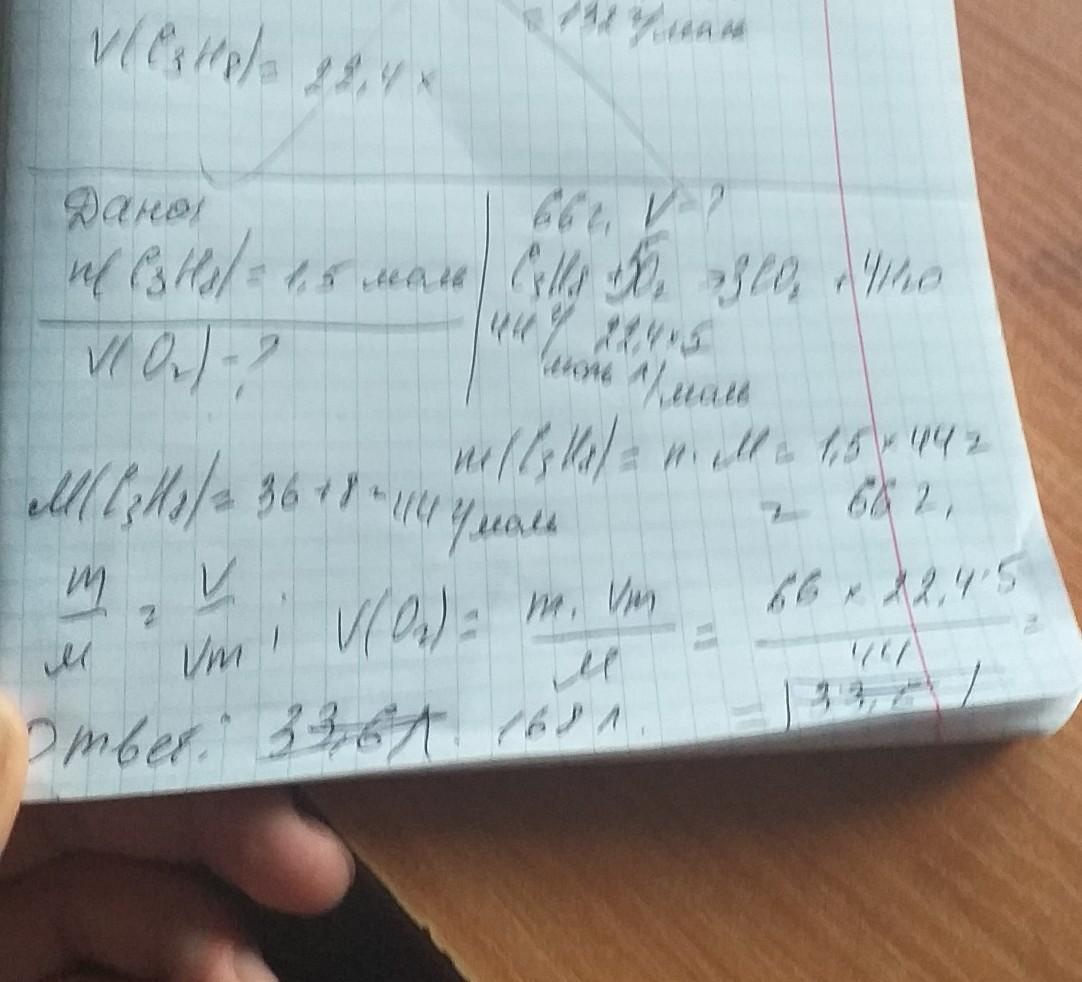 = 132 г/моль
V(C₃H₈) = 22,4 ×
Дано:
n(C₃H₈) = 1,5 моль
V(O₂) - ?
66 г, V = ?
C₃H₈ + 5O₂ → 3CO₂ + 4H₂O
44 г/ 22,4·5
моль л/моль
m(C₃H₈) = n · M = 1,5 × 44 =
= 66 г.
M(C₃H₈) = 36 + 8 = 44 г/моль
m/M = V/Vm ; V(O₂) = m · Vm / M = 66 × 22,4·5 / 44 =
= 33,6
Ответ: 33,6 л. 168 л.